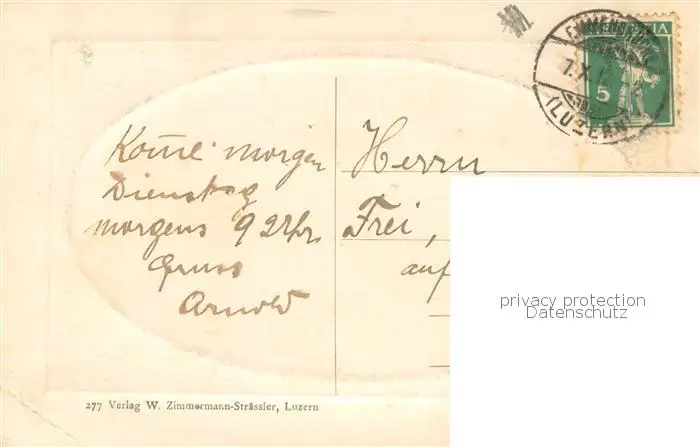 Kom̄e morgen
Dienstag
morgens 9 Uhr.
Gruss
Arnold
Herrn
Frei,
auf
HELVETIA
5
(LUZERN)
privacy protection
Datenschutz
277 Verlag W. Zimmermann-Strässler, Luzern